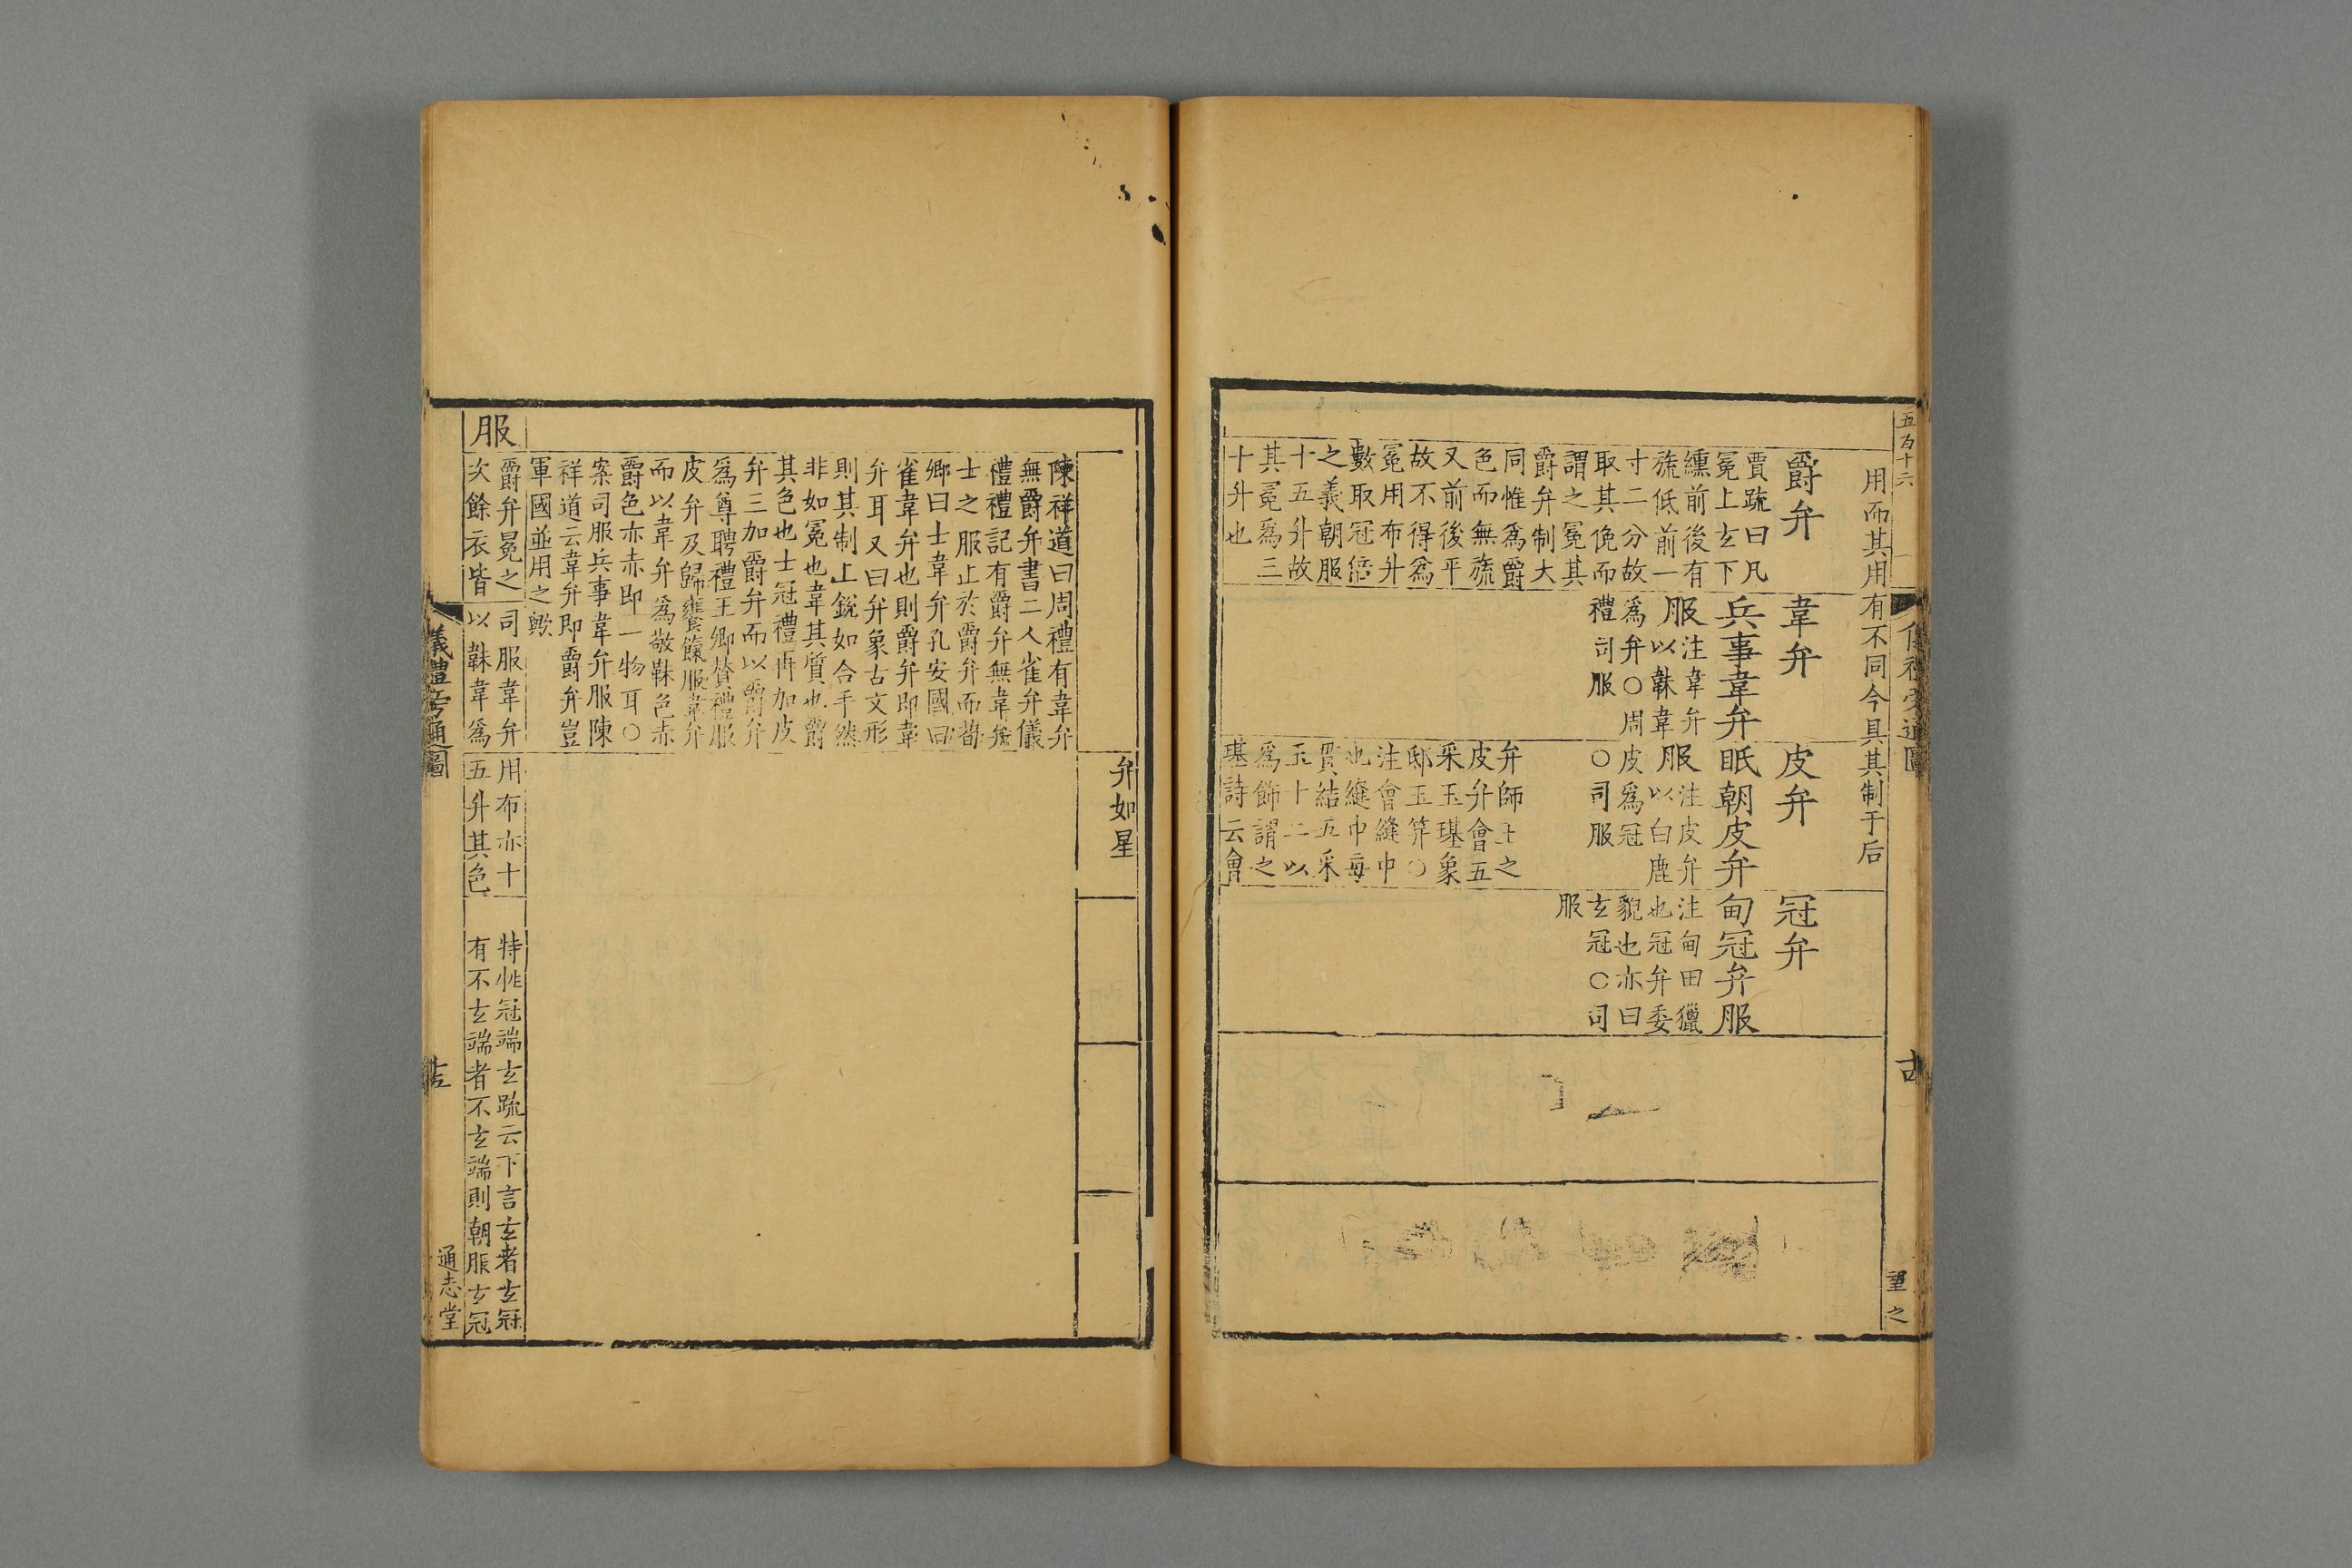 五百十六
望之
用而其用有不同今具其制于后
爵弁
賈疏曰凡
冕上玄下
纁前後有
旒低前一
寸二分故
取其俛而
謂之冕其
爵弁制大
同惟爲爵
色而無旒
又前後平
故不得爲
冕用布升
數取冠倍
之義朝服
十五升故
其冕爲三
十升也
韋弁
兵事韋弁
服
注韋弁
以韎韋
爲弁○周
禮司服
皮弁
眡朝皮弁
服
注皮弁
以白鹿
皮爲冠
○司服
弁師王之
皮弁會五
采玉璂象
邸玉筓○
注會縫中
也縫中每
貫結五采
玉十二以
爲飾謂之
璂詩云會
冠弁
甸冠弁服
注甸田獵
也冠弁委
貌也亦曰
玄冠○司
服
弁如星
陳祥道曰周禮有韋弁
無爵弁書二人雀弁儀
禮禮記有爵弁無韋弁
士之服止於爵弁而荀
卿曰士韋弁孔安國曰
雀韋弁也則爵弁即韋
弁耳又曰弁象古文形
則其制上銳如合手然
非如冕也韋其質也爵
其色也士冠禮再加皮
弁三加爵弁而以爵弁
爲尊聘禮王卿贊禮服
皮弁及歸饔餼服韋弁
而以韋弁爲敬韎色赤
爵色亦赤即一物耳○
案司服兵事韋弁服陳
祥道云韋弁即爵弁豈
軍國並用之歟
服
爵弁冕之
次餘衣皆
司服韋弁
以韎韋爲
用布亦十
五升其色
特牲冠端玄疏云下言玄者玄冠
有不玄端者不玄端則朝服玄冠
儀禮旁通圖
通志堂